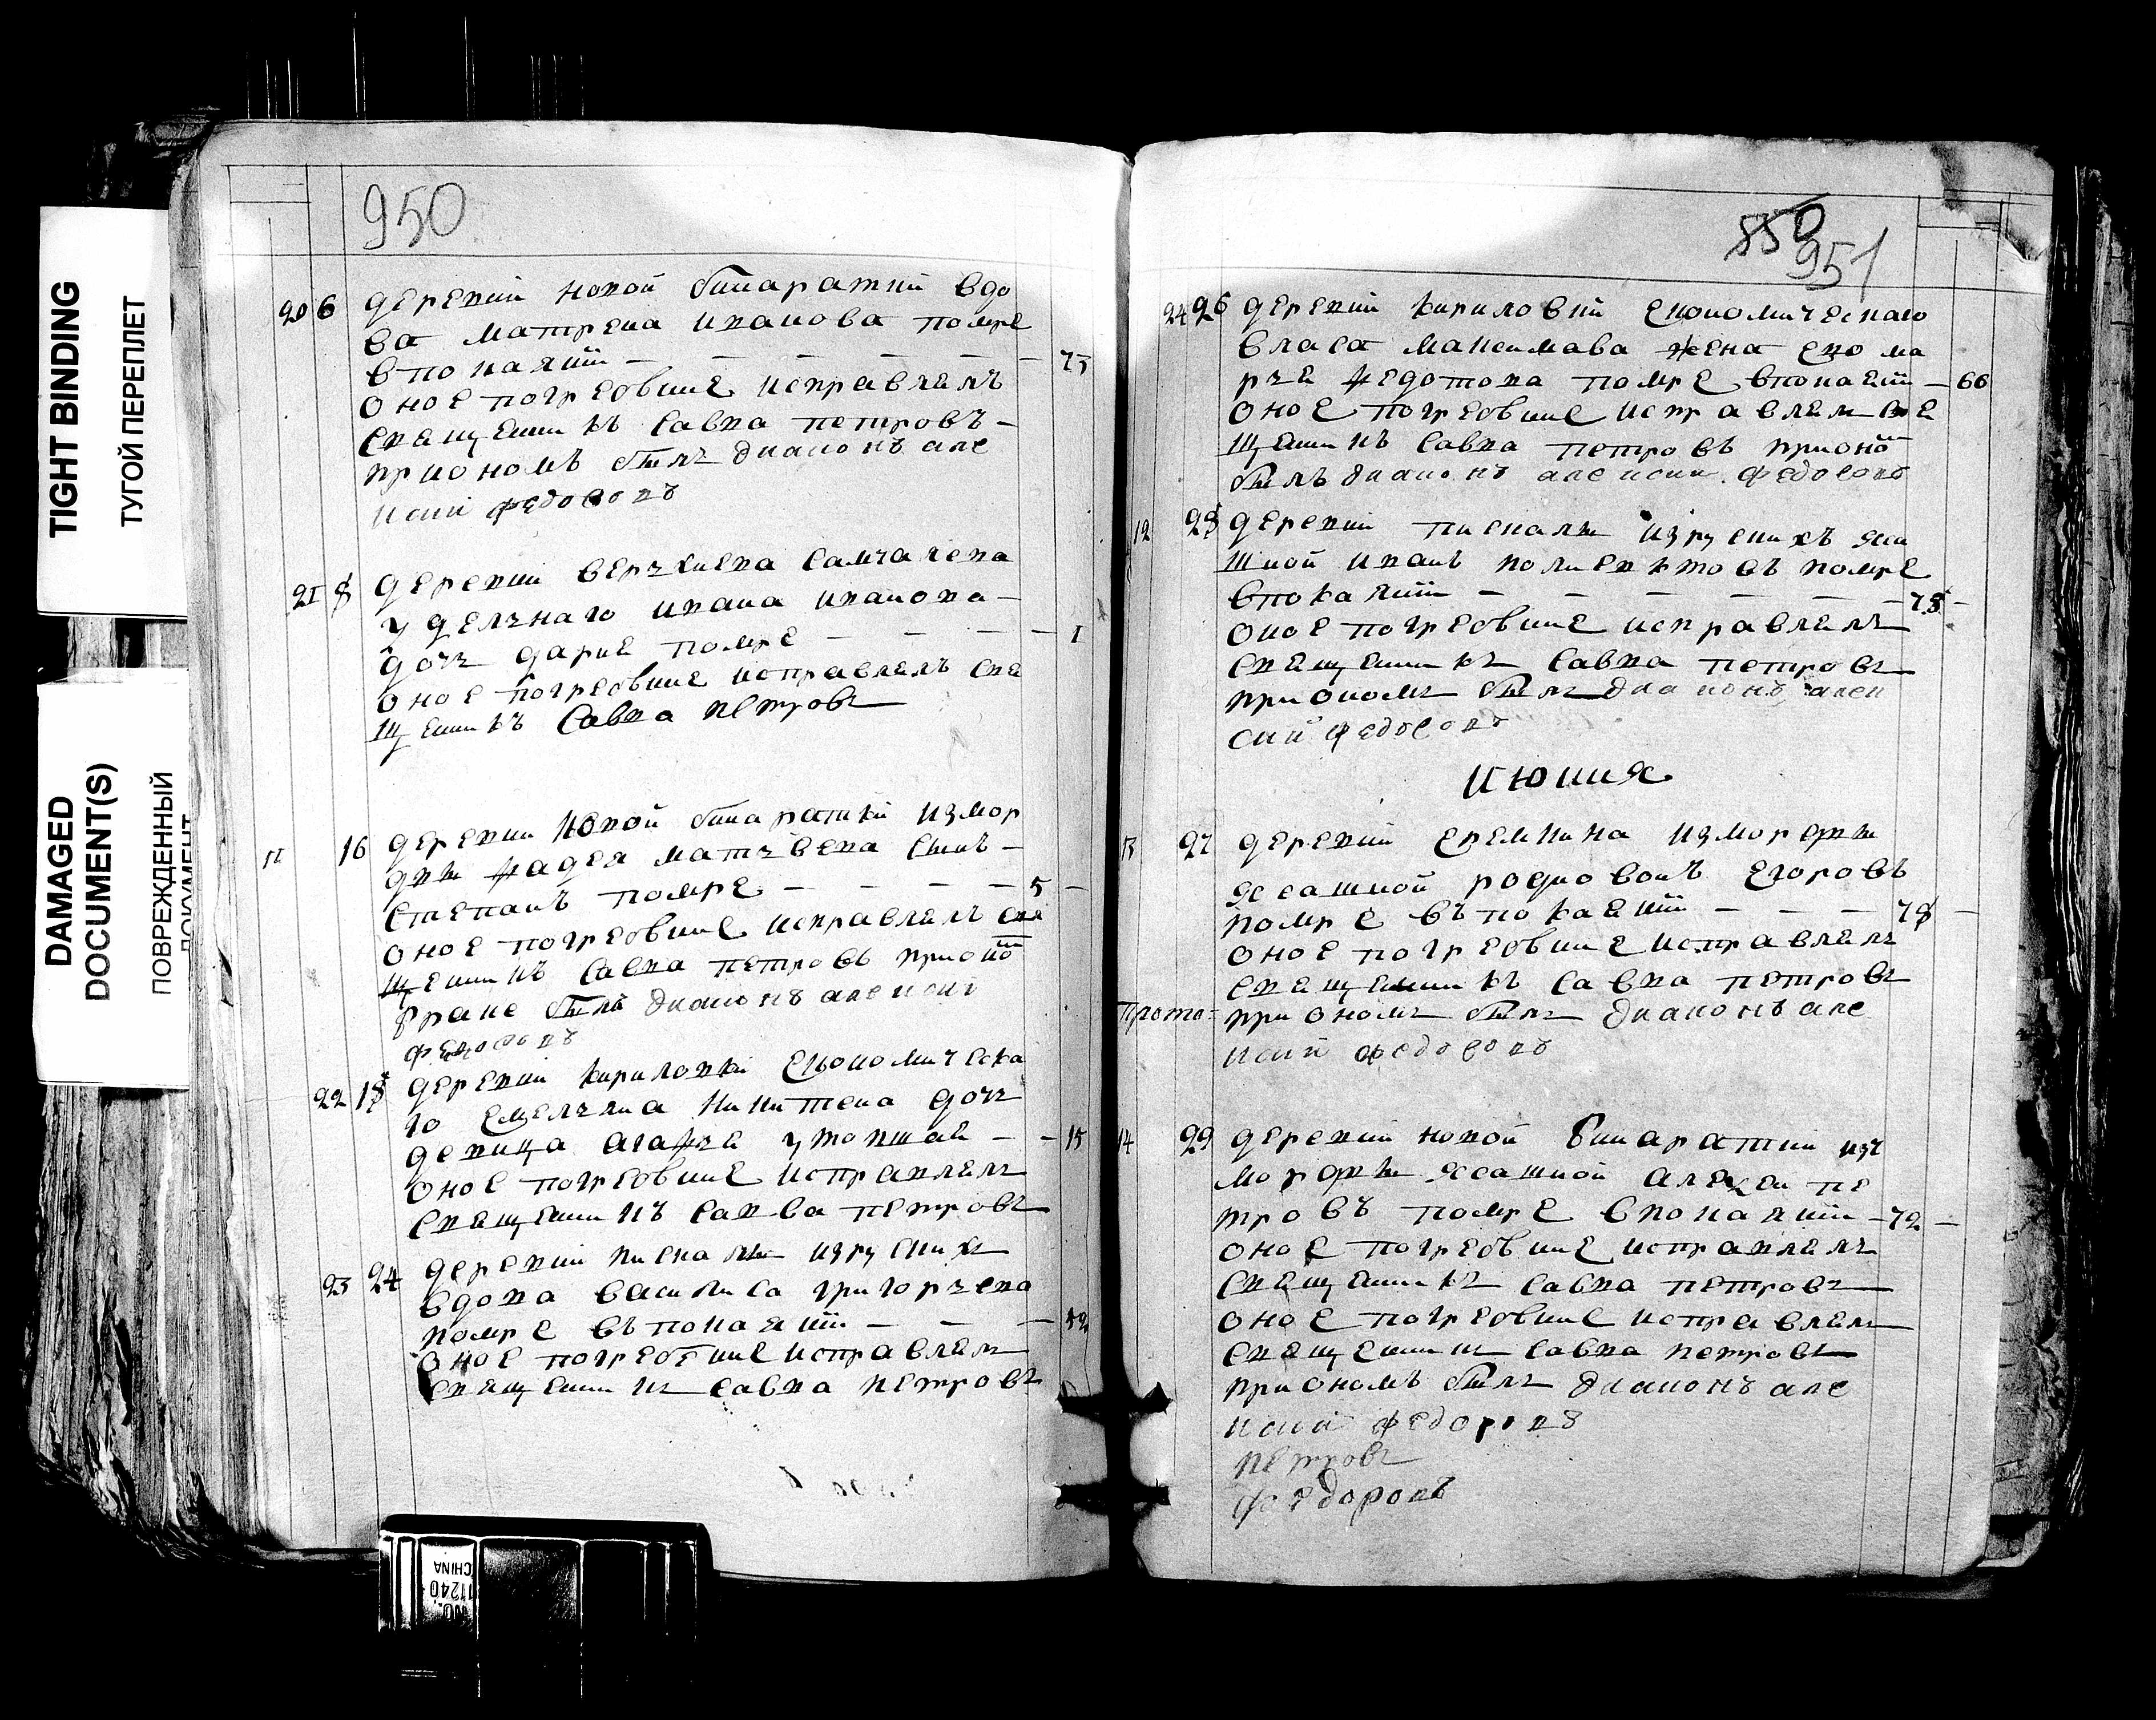 TIGHT BINDING
ТУГОЙ ПЕРЕПЛЕТ
DAMAGED
DOCUMENT(S)
ПОВРЕЖДЕННЫЙ
ДОКУМЕНТ
950
20 6 деревни новой бинаратки вдо
ва матрена иванова помре
впокаянïи — — — — — — 75
оное погребение исправлялъ
священникъ савва петровъ —
приономъ былъ диаконъ але
ксий федосовъ
21 8 деревни
уделнаго ивана иванова —
дочь дария помре — — — — 1
оное погребение исправлялъ свя
щенникъ савва петровъ
11 16 деревни новой бинаратки измор
двы фадея матвѣева сынъ —
степанъ помре — — — — 5 —
оное погребение исправлялъ свя
щенникъ савва петровъ приono
браке былъ диаконъ алексий
федосовъ
22 18 деревни кириловки економическа
го емельяна никитена дочь
девица агафья утопшая — — 15
оное погребение исправлялъ
священникъ савва петровъ
23 24 деревни пискалы изруских
вдова василиса григорьева
помре въпокаянïи — — — 52
оное погребение исправлялъ
священникъ савва петровъ
850
951
24 26 деревни кириловки економическаго
власа максимава жена ево ма
рья федотова помре впокаянïи — 66
оное погребение исправлялъ свя
щенникъ савва петровъ приono
былъ диаконъ алексии федосовъ
12 28 деревни пискалы изрускихъ яса
шной иванъ полиевктовъ помре
впокаянïи — — — — — — 78 —
оное погребение исправлялъ
священникъ савва петровъ
приономъ былъ диаконъ алек
сий федосовъ
июния
13 27 деревни еремкина измордвы
ясашной родиовонъ егоровъ
помре въпокаянïи — — — 78 —
оное погребение исправлялъ
священникъ савва петровъ
прото= приономъ былъ диаконъ але
ксий федосовъ
14 29 деревни новой бинаратки из
мордвы ясашной алексеи пе
тровъ помре впокаянïи — 72 —
оное погребение исправлялъ
священникъ савва петровъ
оное погребение исправлялъ
священникъ савва петровъ
приономъ былъ диаконъ але
ксий федоровъ
петровъ
федоровъ
NO.
11240
CHINA